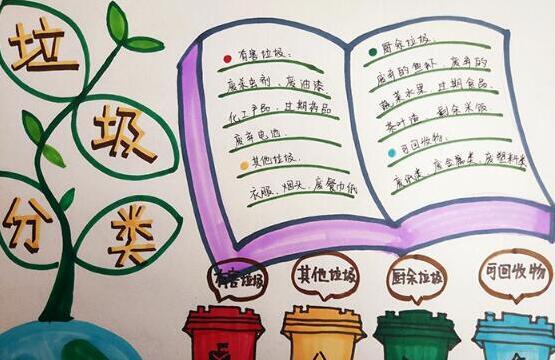 垃
圾
分类
有害垃圾.
废杀虫剂、废油漆、
化工产品、过期药品
废弃电池.
其他垃圾.
衣服、烟头、废餐巾纸
厨余垃圾.
废弃的鱼虾、废弃的
蔬菜水果、过期食品.
茶叶渣、剩余米饭
可回收物.
废纸类、废金属类、废塑料类
有害垃圾
其他垃圾
厨余垃圾
可回收物